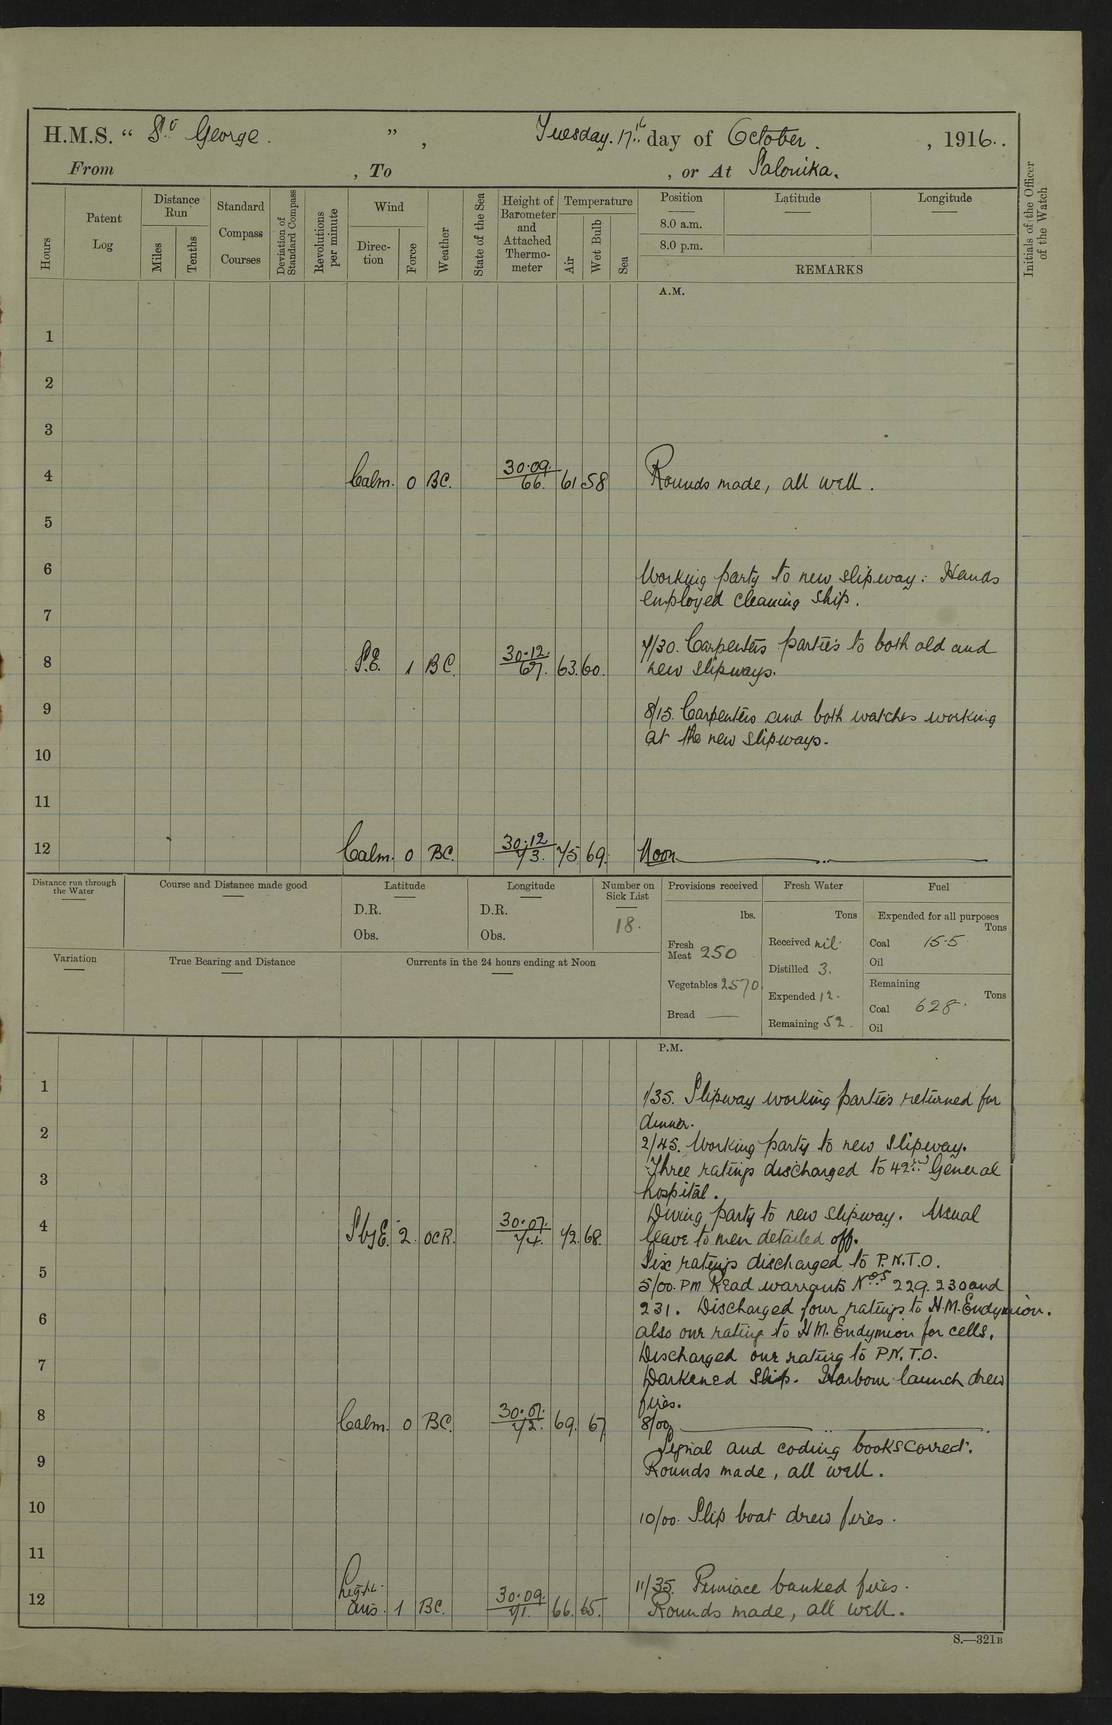 H.M.S. “ St George. ” , Tuesday. 17th day of October. , 1916..
From , To , or At Salonika.
Hours
Patent Log
Distance Run
Miles
Tenths
Standard Compass Courses
Deviation of Standard Compass
Revolutions per minute
Wind
Direc-tion
Force
Weather
State of the Sea
Height of Barometer and Attached Thermo-meter
Temperature
Air
Wet Bulb
Sea
Position
8.0 a.m.
8.0 p.m.
Latitude
Longitude
REMARKS
Initials of the Officer of the Watch
A.M.
1
2
3
4 Calm. 0 BC. 30.09. 66. 61 58 Rounds made, all well.
5
6 Working party to new slipway: Hands
employed cleaning ship.
7
7/30. Carpenters parties to both old and
8 S.E. 1 BC. 30.12. 67. 63. 60. new slipways.
9 8/15. Carpenters and both watches working
at the new slipways.
10
11
12 Calm. 0 BC. 30.12 73. 75 69. Noon
Distance run through the Water
Course and Distance made good
Latitude
D.R.
Obs.
Longitude
D.R.
Obs.
Number on Sick List
18.
Provisions received
lbs.
Fresh Meat 250
Vegetables 2570
Bread —
Fresh Water
Tons
Received nil.
Distilled 3.
Expended 12.
Remaining 52.
Fuel
Expended for all purposes
Tons
Coal 15.5
Oil
Remaining
Tons
Coal 628.
Oil
Variation
True Bearing and Distance
Currents in the 24 hours ending at Noon
P.M.
1 1/35. Slipway working parties returned for
dinner.
2 2/45. Working party to new slipway.
Three ratings discharged to 42nd General
3 hospital.
Diving party to new slipway. Usual
4 SbyE. 2. OCR. 30.07. 74. 72. 68. leave to men detailed off.
Six ratings discharged to P.N.T.O.
5 5/00. PM Read warrants Nos 229. 230 and
231. Discharged four ratings to H.M. Endymion.
6 also one rating to H.M. Endymion for cells.
Discharged one rating to P.N.T.O.
7 Darkened Ship. Harbour launch drew
fires.
8 Calm. 0 BC. 30.07. 72. 69. 67 8/00.
Signal and coding books correct.
9 Rounds made, all well.
10 10/00. Slip boat drew fires.
11
11/35. Pinnace banked fires.
12 Light airs. 1 BC. 30.09. 71. 66. 65. Rounds made, all well.
S.—321B